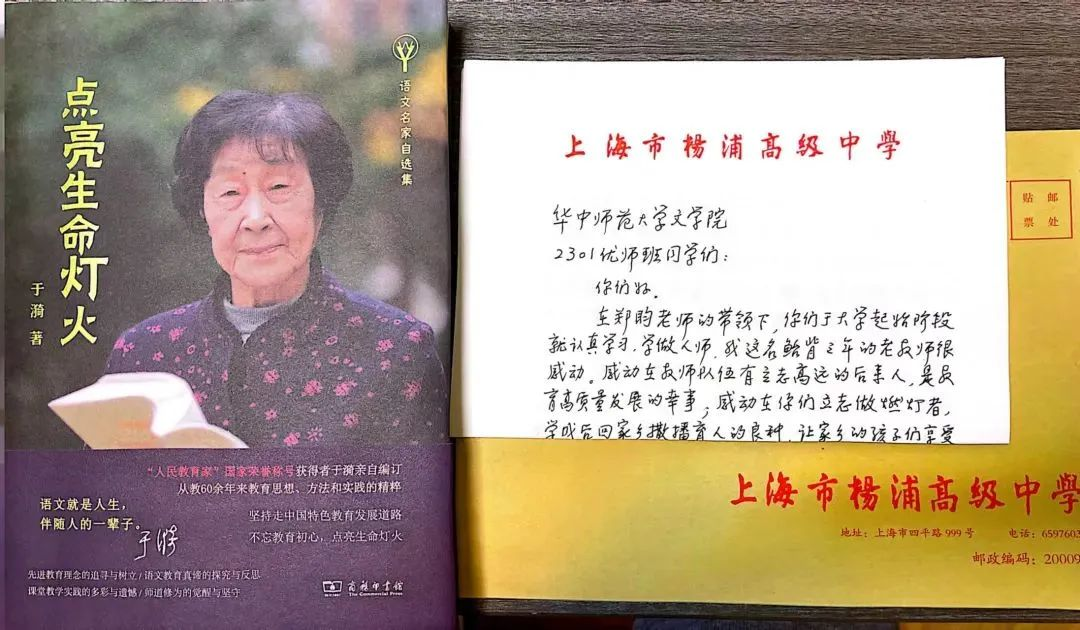 点亮生命灯火
于漪 著
语文名家自选集
“人民教育家”国家荣誉称号获得者于漪亲自编订
从教60余年来教育思想、方法和实践的精粹
语文就是人生，
伴随人的一辈子。
于漪
坚持走中国特色教育发展道路
不忘教育初心，点亮生命灯火
先进教育理念的追寻与树立/语文教育真谛的探究与反思
课堂教学实践的多彩与遗憾/师道修为的觉醒与坚守
商務印書館
The Commercial Press
上海市楊浦高級中學
华中师范大学文学院
2301优师班同学们：
你们好。
在郑昀老师的带领下，你们于大学起始阶段
就认真学习，学做人师，我这名鲐背之年的老教师很
感动。感动在教师队伍有立志高远的后来人，是教
育高质量发展的幸事；感动在你们立志做燃灯者，
学成后回家乡撒播育人的良种，让家乡的孩子们享受
贴邮
票处
上海市楊浦高級中學
地址：上海市四平路999号 电话：6597603
邮政编码：20009